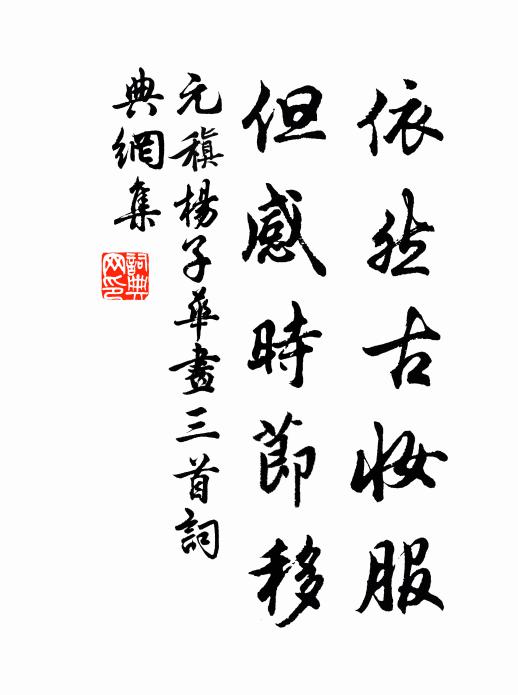 依然古妝服
但感時節移
元稹楊子華畫三首詞
典網集
詞典
网印